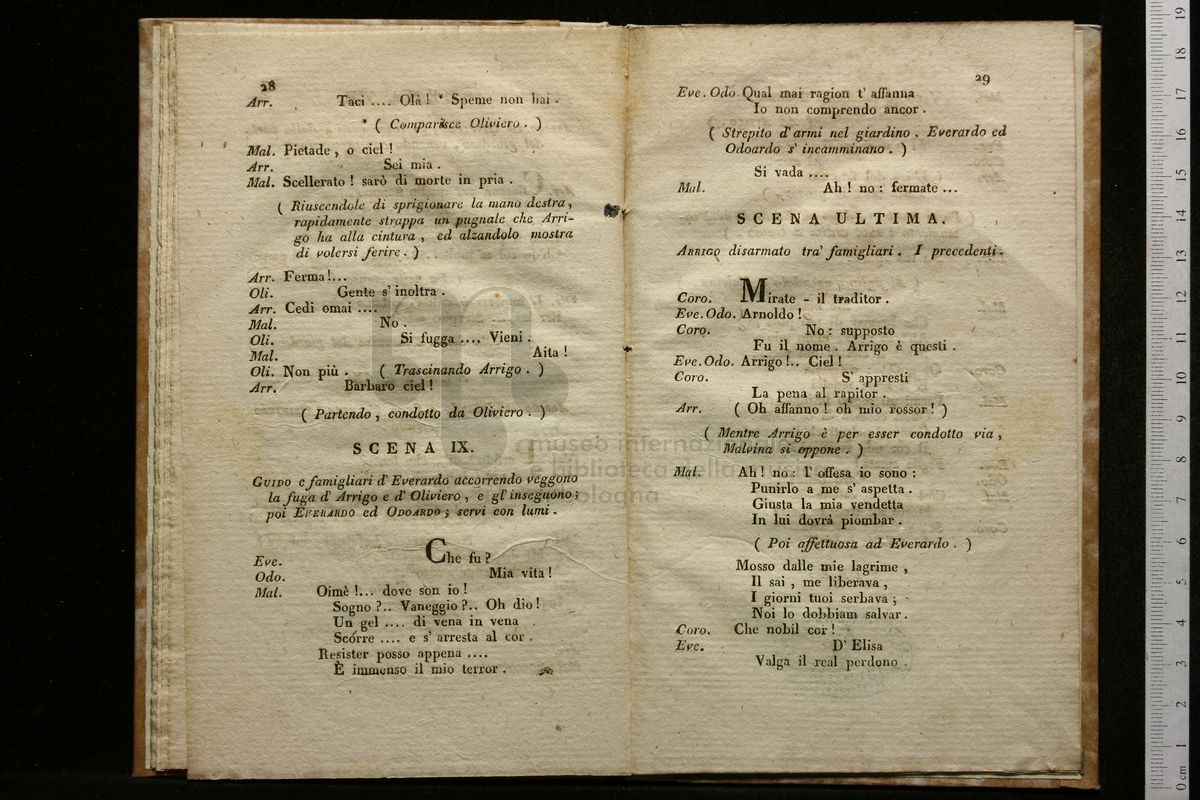 28
Arr. Taci .... Olà ! * Speme non hai .
* ( Comparisce Oliviero . )
Mal. Pietade , o ciel !
Arr. Sei mia .
Mal. Scellerato ! sarò di morte in pria .
( Riuscendole di sprigionare la mano destra ,
rapidamente strappa un pugnale che Arri-
go ha alla cintura , ed alzandolo mostra
di volersi ferire . )
Arr. Ferma !...
Oli. Gente s' inoltra .
Arr. Cedi omai ....
Mal. No .
Oli. Si fugga .... Vieni .
Mal. Aita !
Oli. Non più . ( Trascinando Arrigo . )
Arr. Barbaro ciel !
( Partendo , condotto da Oliviero . )
SCENA IX.
GUIDO e famigliari d' Everardo accorrendo veggono
la fuga d' Arrigo e d' Oliviero , e gl' inseguono ;
poi EVERARDO ed ODOARDO ; servi con lumi .
Eve. Che fu ?
Odo. Mia vita !
Mal. Oimè !... dove son io !
Sogno ?.. Vaneggio ?.. Oh dio !
Un gel .... di vena in vena
Scorre .... e s' arresta al cor .
Resister posso appena ....
È immenso il mio terror .
29
Eve. Odo. Qual mai ragion t' affanna
Io non comprendo ancor .
( Strepito d' armi nel giardino . Everardo ed
Odoardo s' incamminano . )
Si vada ....
Mal. Ah ! no : fermate ...
SCENA ULTIMA.
ARRIGO disarmato tra' famigliari . I precedenti .
Coro. Mirate - il traditor .
Eve. Odo. Arnoldo !
Coro. No : supposto
Fu il nome . Arrigo è questi .
Eve. Odo. Arrigo !.. Ciel !
Coro. S' appresti
La pena al rapitor .
Arr. ( Oh affanno ! oh mio rossor ! )
( Mentre Arrigo è per esser condotto via ,
Malvina si oppone . )
Mal. Ah ! no : l' offesa io sono :
Punirlo a me s' aspetta .
Giusta la mia vendetta
In lui dovrà piombar .
( Poi affettuosa ad Everardo . )
Mosso dalle mie lagrime ,
Il sai , me liberava ,
I giorni tuoi serbava ;
Noi lo dobbiam salvar .
Coro. Che nobil cor !
Eve. D' Elisa
Valga il real perdono .
museo internaz
e biblioteca della
bologna
0 cm 1 2 3 4 5 6 7 8 9 10 11 12 13 14 15 16 17 18 19